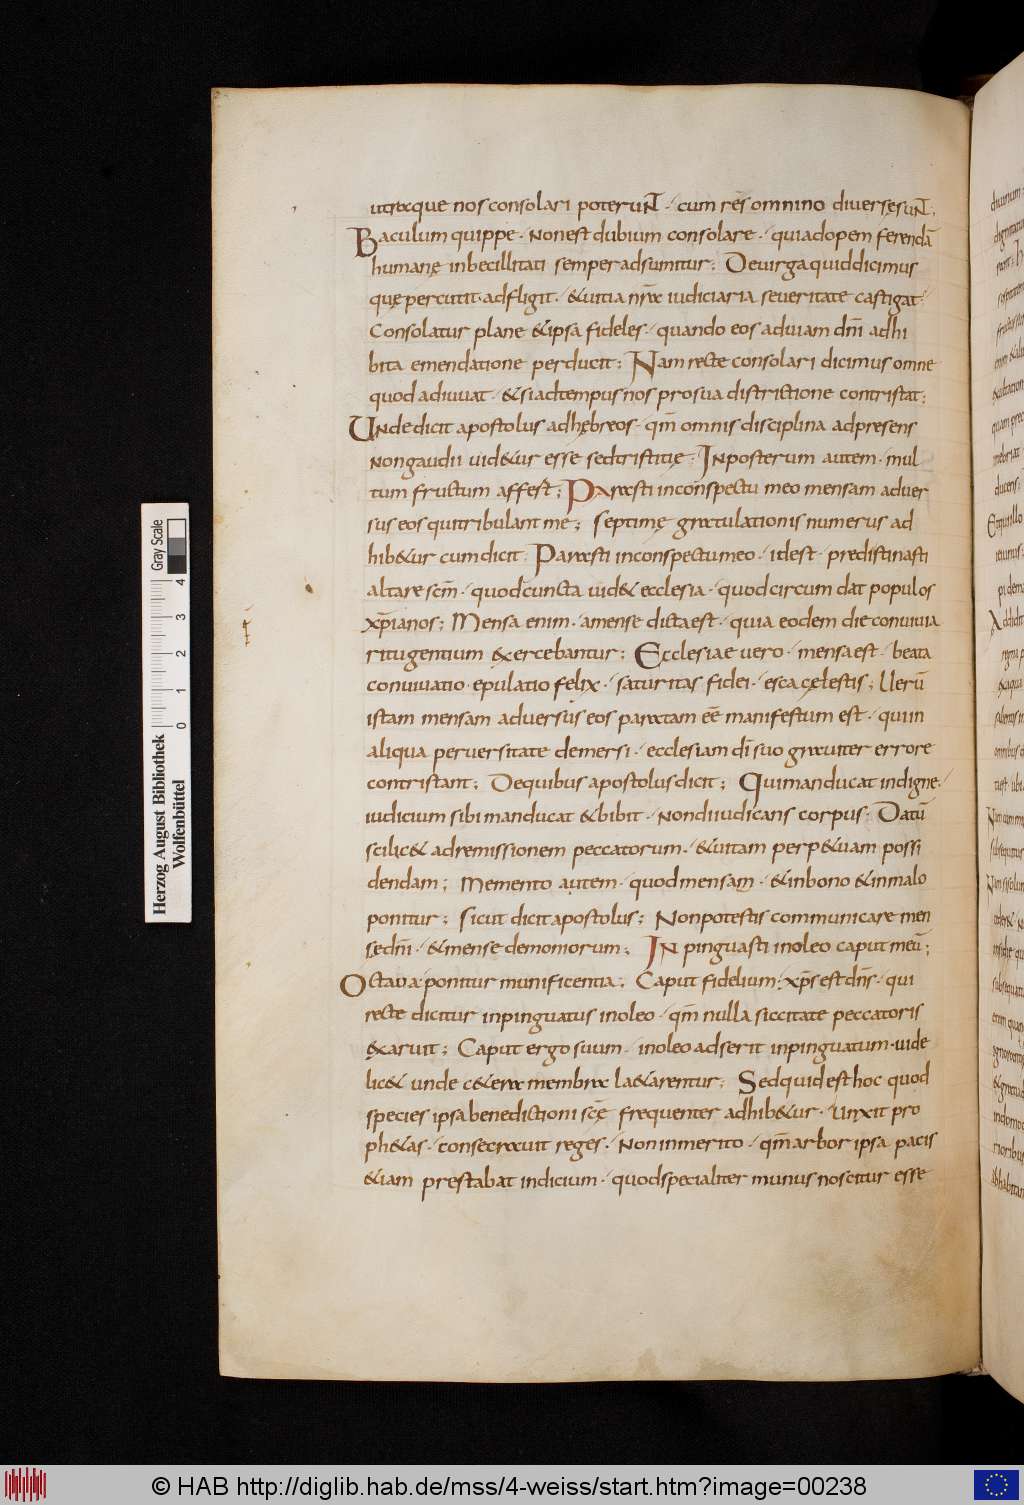 utraque nos consolari poterunt · cum res omnino diversę sunt;
Baculum quippe · non est dubium consolare · quia ad opem ferendā
humanę inbecillitati semper adsumitur; De virga quid dicimus
quę percutit · adfligit · & vitia nr̄a iudiciaria severitate castigat;
Consolatur plane & ipsa fideles · quando eos ad viam dn̄i adhi
bita emendatione perducit; Nam recte consolari dicimus omne
quod adiuvat · & si ad tempus nos pro sua districtione contristat;
Unde dicit apostolus ad hębreos · qm̄ omnis disciplina ad presens
non gaudii vid&ur esse sed tristitię; In posterum autem · mul
tum fructum affest; Parasti in conspectu meo mensam adver
sus eos qui tribulant me; septimę gratulationis numerus ad
hib&ur cum dicit · Parasti in conspectu meo · id est · predistinasti
altare scm̄ · quod cuncta vid& ecclesia · quod circumdat populos
xp̄ianos; Mensa enim · a mense dicta est · quia eodem die convivia
ritu gentium exercebantur; Ecclesiae vero · mensa est · beata
convivatio · epulatio felix · saturitas fidei · esca cęlestis; Verū
istam mensam adversus eos paratam eē manifestum est · qui in
aliqua perversitate demersi · ecclesiam dī suo graviter errore
contristant; De quibus apostolus dicit; Qui manducat indigne ·
iudicium sibi manducat & bibit · non diiudicans corpus; Datū
scilic& ad remissionem peccatorum · & vitam perp&uam possi
dendam; Memento autem · quod mensam · & in bono & in malo
ponitur; Sicut dicit apostolus; Non potestis communicare men
sę dn̄i · & mense demoniorum; In pinguasti in oleo caput meū;
Octava ponitur munificentia; Caput fidelium · xp̄s est dn̄s · qui
recte dicitur inpinguatus in oleo · qm̄ nulla siccitate peccatoris
exaruit; Caput ergo suum · in oleo adserit inpinguatum · vide
lic& unde c&era membra la&arentur; Sed quid est hoc quod
species ipsa benedictioni scę̄ frequenter adhib&ur · Unxit pro
ph&as · consecravit reges · Non inmerito · qm̄ arbor ipsa pacis
&iam prestabat indicium · quod specialiter munus noscitur esse
Herzog August Bibliothek
Wolfenbüttel
0 1 2 3 4
Gray Scale
© HAB http://diglib.hab.de/mss/4-weiss/start.htm?image=00238